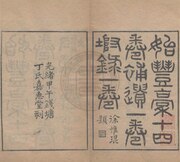 始豐稾十四
卷補遺一卷
坿錄一卷
徐惟琨題
光緒甲午錢塘
丁氏嘉惠堂刊